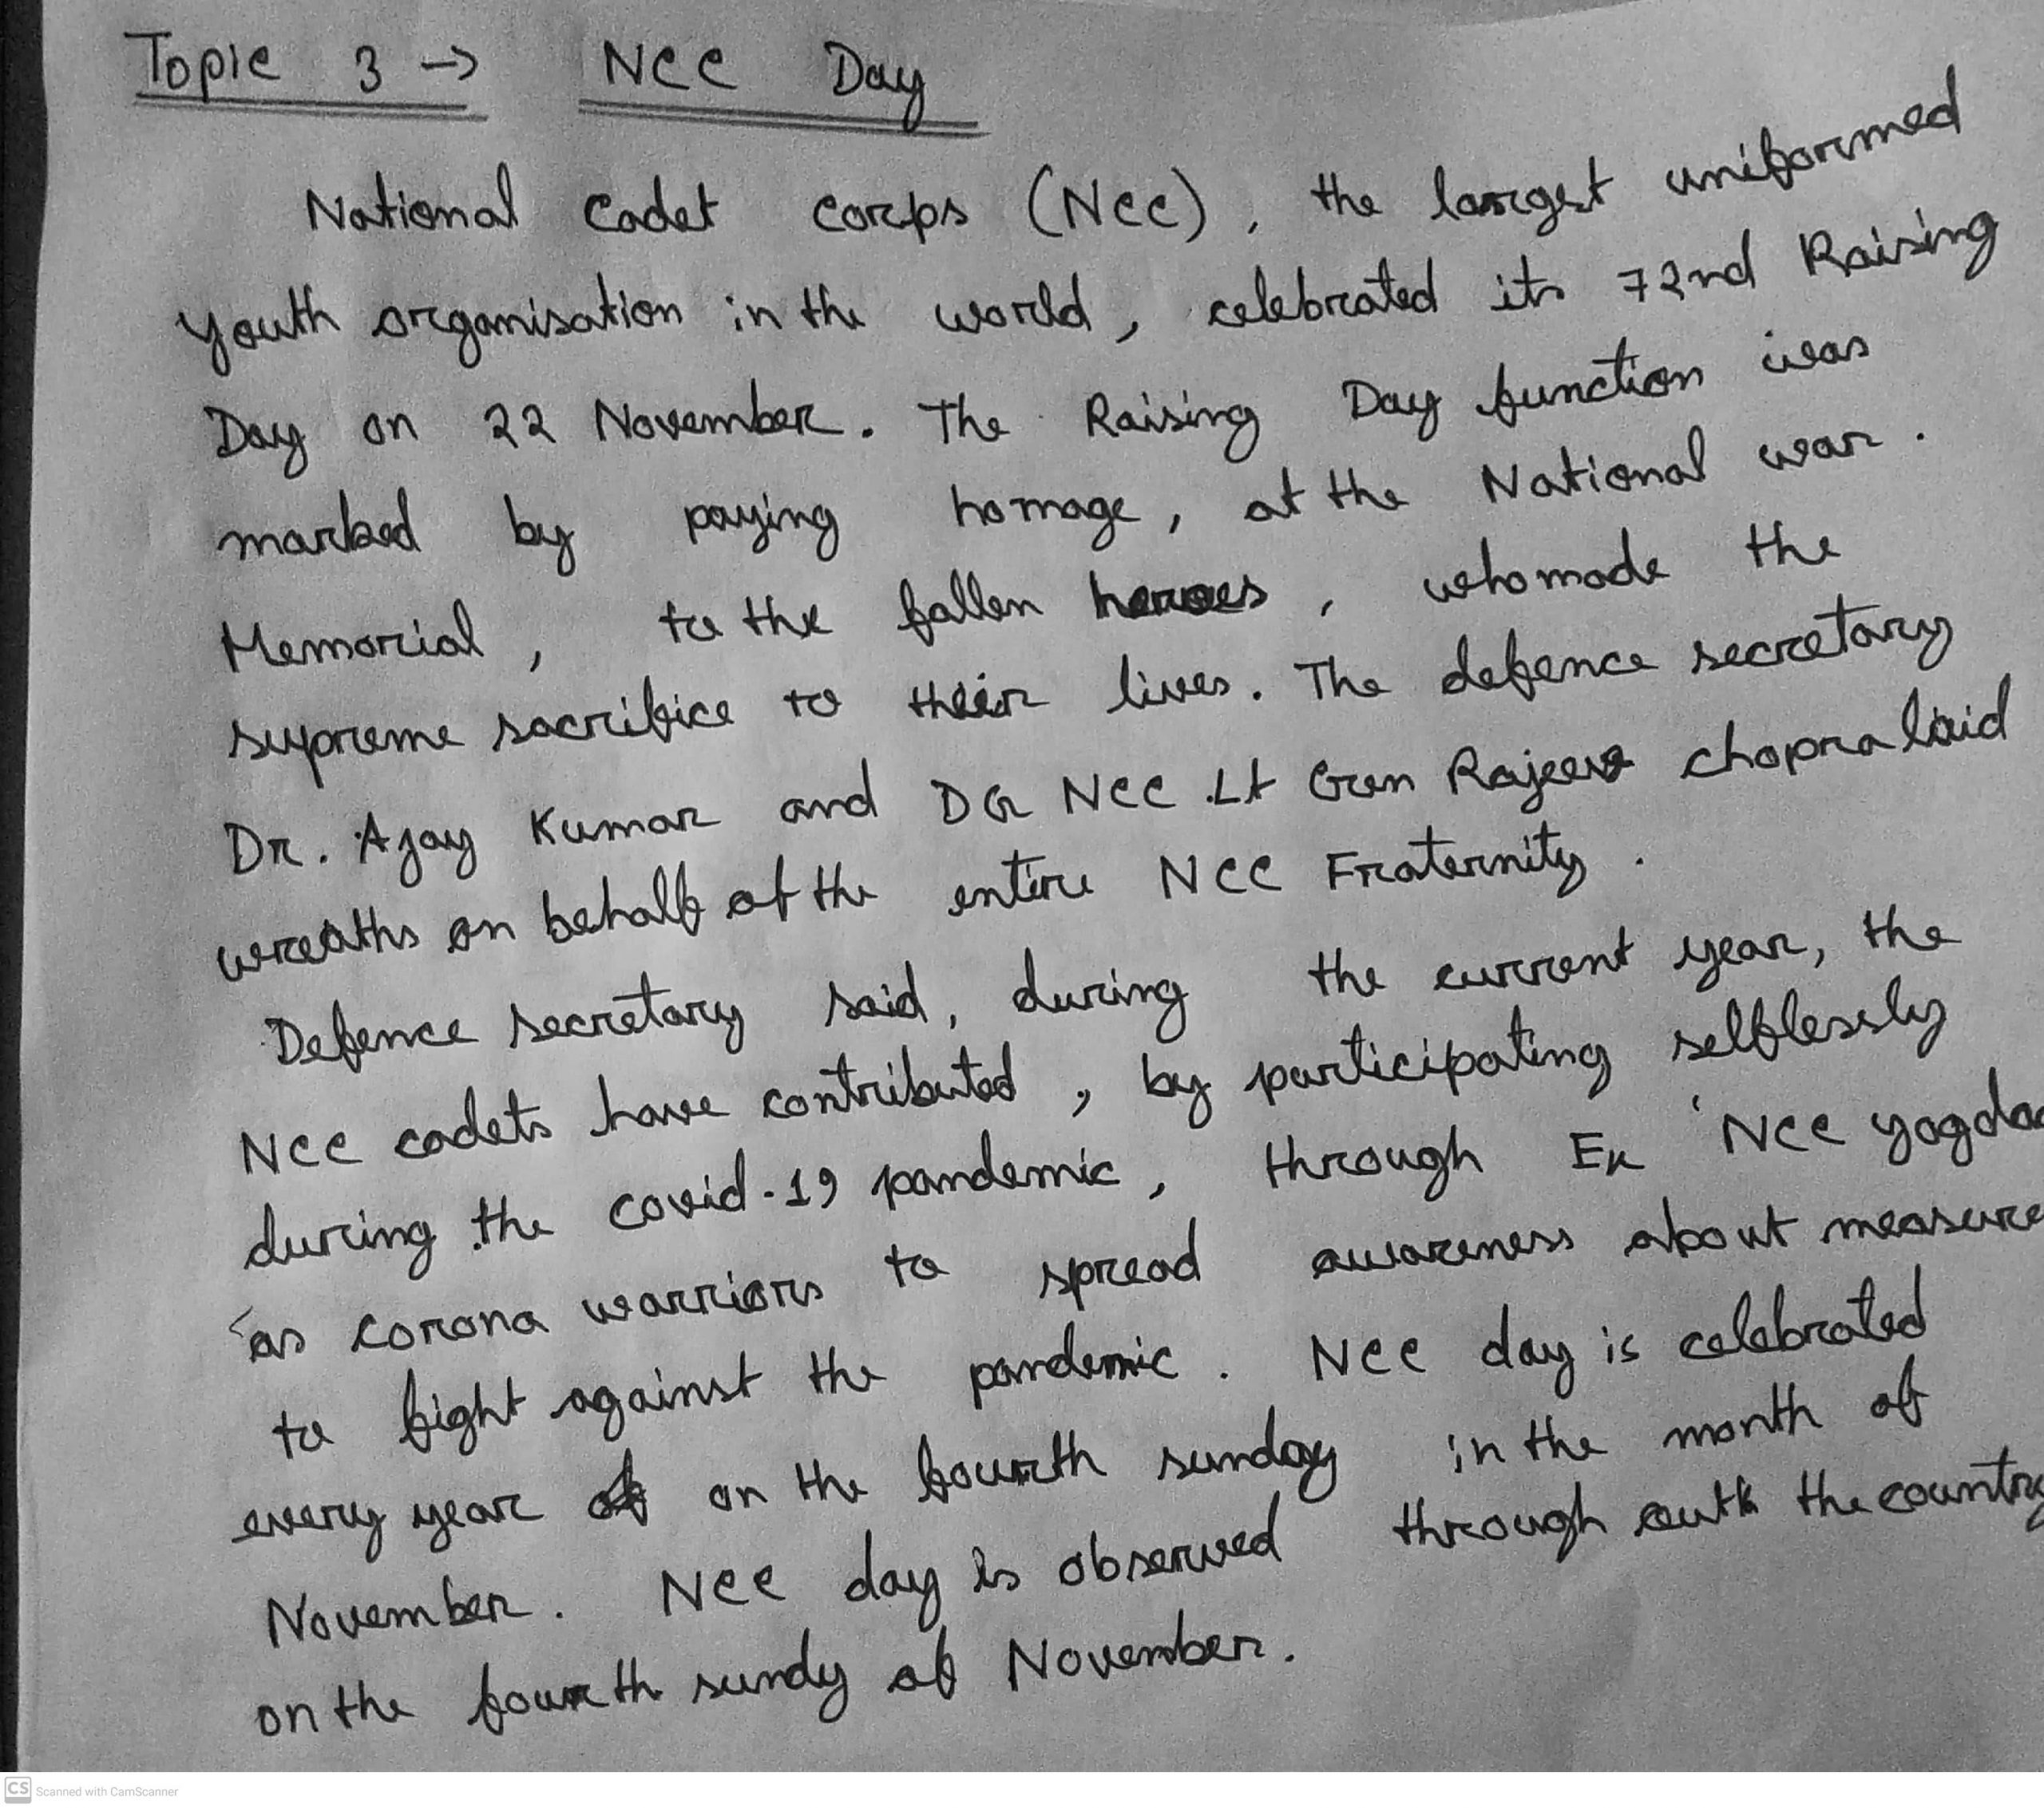 Topic 3 → NCC Day
National Cadet Corps (NCC), the largest uniformed
youth organisation in the world, celebrated its 72nd Raising
Day on 22 November. The Raising Day function was
marked by paying homage, at the National war.
Memorial, to the fallen heroes, who made the
supreme sacrifice to their lives. The defence secretary
Dr. Ajay Kumar and DG NCC Lt Gen Rajeev chopra laid
wreaths on behalf of the entire NCC Fraternity.
Defence secretary said, during the current year, the
NCC cadets have contributed, by participating selflessly
during the covid-19 pandemic, through Ex 'NCC yogda
as corona warriors to spread awareness about measure
to fight against the pandemic. NCC day is celebrated
every year on the fourth sunday in the month of
November. NCC day is observed through outh the country
on the fourth sundy of November.
CS Scanned with CamScanner